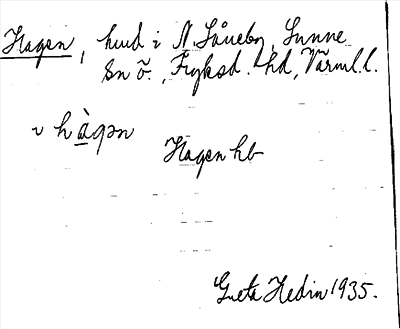 Hagen, hmd i N. Låneby, Sunne
sn ö., Fryksd. hd, Värml.l.
v hàgən
Hagen hb
Greta Hedin 1935.